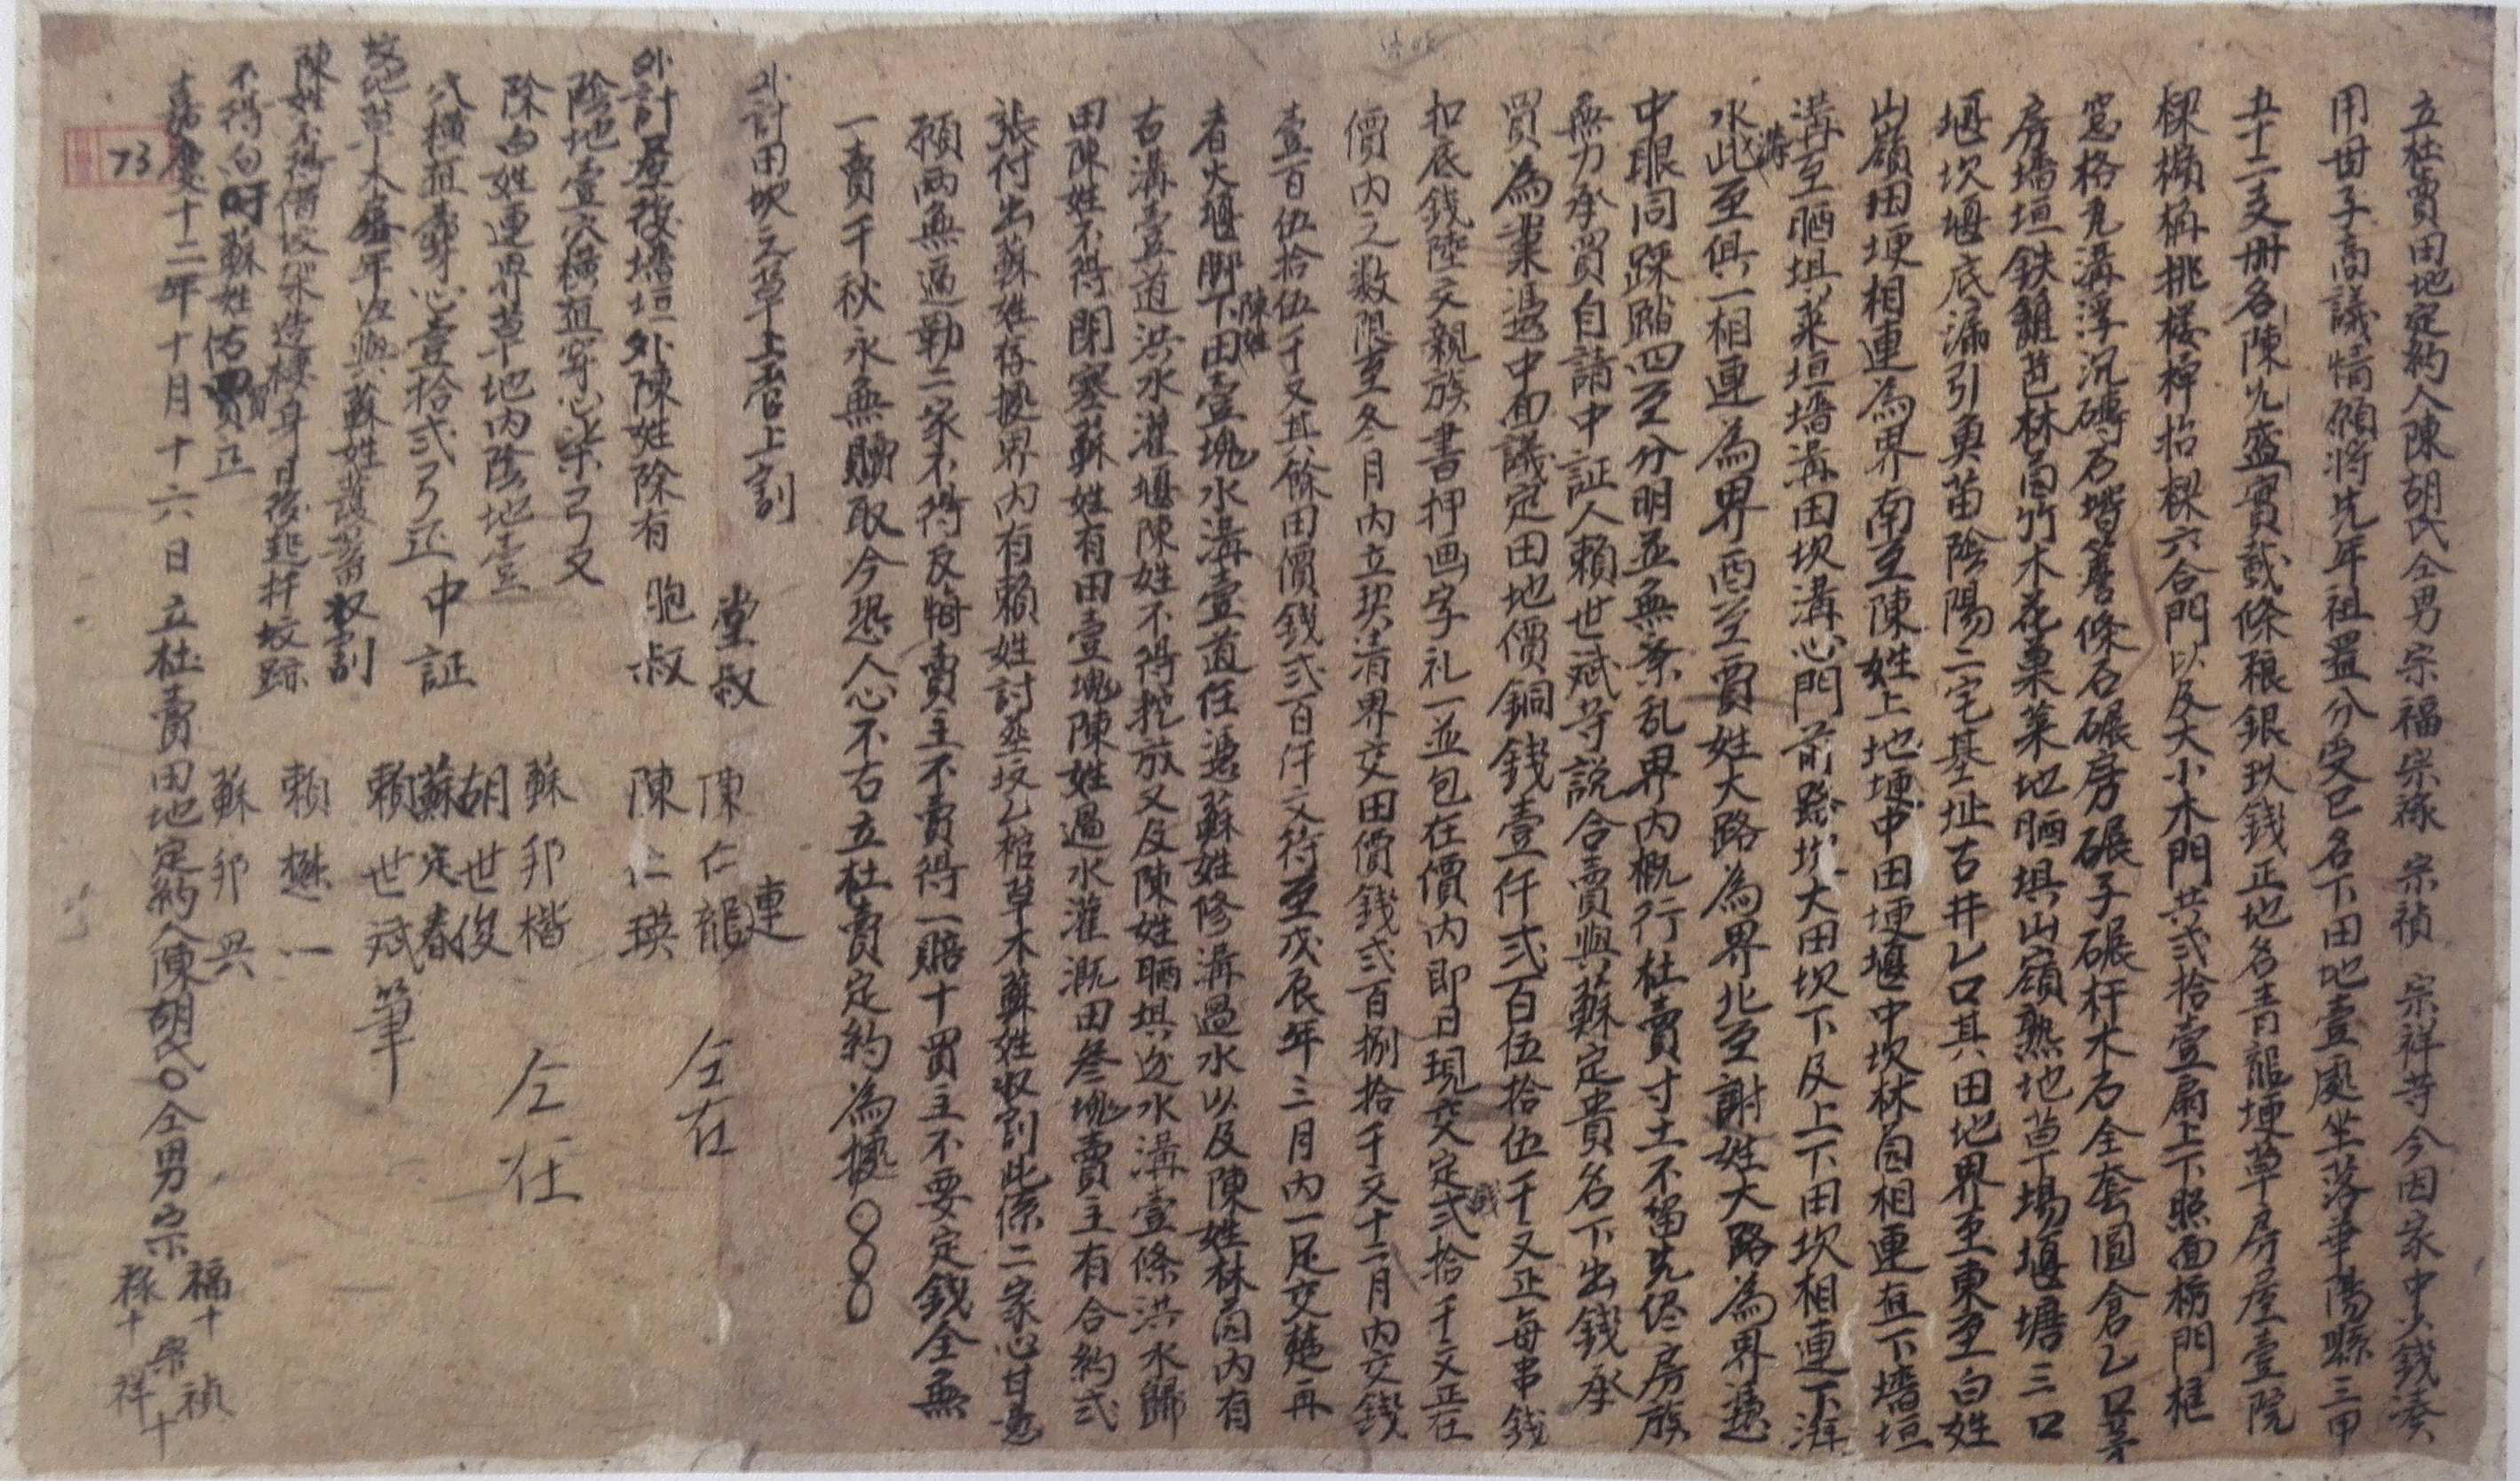 立杜賣田地定約人陳胡氏仝男宗福宗祿宗禎宗祥等今因家中少錢湊
用毌子髙議情愿將先年祖置分受已名下田地壹處坐落華陽縣三甲
五十二支册名陳九盛實載條粮銀玖錢正地名青龍埂草房屋壹院
樑𣟴桷挑樓枰抬樑六合門以及大小木門共弍拾壹扇上下照面栃門框
窓格瓦溝浮沉磚石堦簷條石碾房碾子碾杆木石全套圓倉乙口茅
房墻垣鉄籬芭林园竹木花菓菜地晒埧山嶺熟地草場堰塘三口
堰坎堰底漏引魚苗陰陽二宅基址古井乙口其田地界至東至白姓
山嶺田埂相連為界南至陳姓上地埂中田埂堰中坎林园相連直下墻垣
溝至晒埧菜垣墻溝田坎溝心門前路坎大田坎下及上下田坎相連下溝
溝
水此至俱一相連為界酉至賈姓大路為界北至謝姓大路為界憑
中眼同踩踏四至分明並無紊乱界內概行杜賣寸土不留先侭房族
無力承買自請中証人賴世斌等説合賣與蘇定貴名下出錢承
買為業憑中面議定田地價銅錢壹仟弍百伍拾伍千文正每串錢
扣底錢陸文親族書押画字礼一並包在價內即日現交定弍拾千文正在
錢
價內之数限至冬月內立契清界交田價錢弍百捌拾千文十二月內交錢
壹百伍拾伍千文其餘田價錢弍百仟文待至戊辰年三月內一足交楚再
陳姓
者火堰脚下田壹塊水溝壹道任憑蘇姓修溝過水以及陳姓林园內有
古溝壹道洪水灌堰陳姓不得挖放又及陳姓晒埧边水溝壹條洪水歸
田陳姓不得閉塞蘇姓有田壹塊陳姓過水灌溉田叁塊賣主有合約弍
張付出蘇姓存據界內有賴姓討塟坟乙棺草木蘇姓収割此係二家心甘意
願兩無逼勒二家不得反悔賣主不賣得一賠十買主不要定錢全無
一賣千秋永無贖取今恐人心不古立杜賣定約為據
外計田坎之草上言上割
堂叔 陳仁龍 連
仝在
胞叔 陳仁瑛
外計屋後墻垣外陳姓除有
陰地壹穴橫直穿心柒弓又
除白姓連界草地內陰地壹
弍橫直穿心壹拾弍弓还
坟地草木歷年边與蘇姓護蓄収割
陳姓不得借坟架造棲身日後起扦坟跡
不得向
蘇姓估買正
中証 蘇邦楷
胡世俊
蘇定春
賴世斌筆
賴懋一
蘇邦興
仝在
嘉慶十二年十月十六日立杜賣田地定約人陳胡氏○仝男宗
福十
祿十
宗
禎
祥十
73